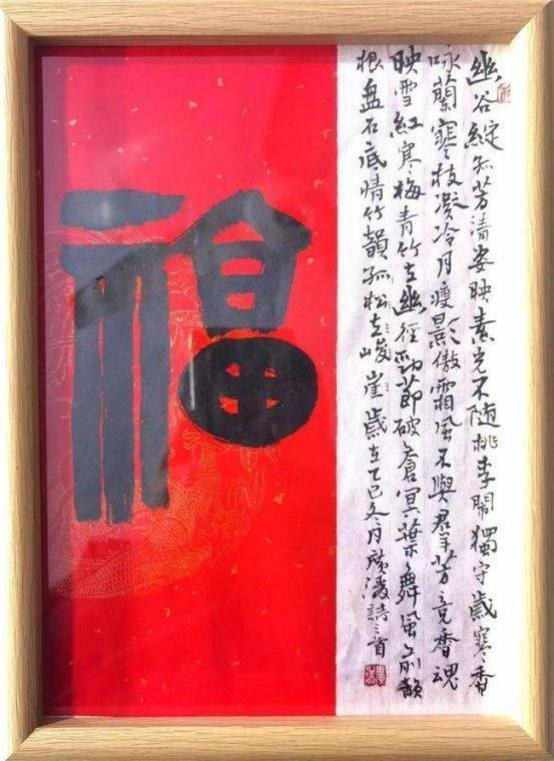 福
幽谷綻孤芳清姿映素光不隨桃李鬧獨守歲寒香
咏蘭寒枝凝冷月瘦影傲霜風不與群芳竞香魂
映雪紅寒梅青竹立幽徑勁節破蒼冥葉舞風前韻
根盤石底情竹韻孤松立峻崖歲在乙巳冬月廣陵詩三首